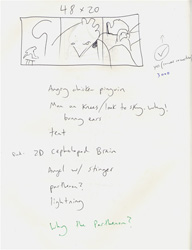 48 x 20
Angry chicken penguin
Man on knees / look to sky. Why?
bunny ears
tent
2D Cephalopod Brain
Angel w/ stinger
parthenon?
lightning
Why the Parthenon?